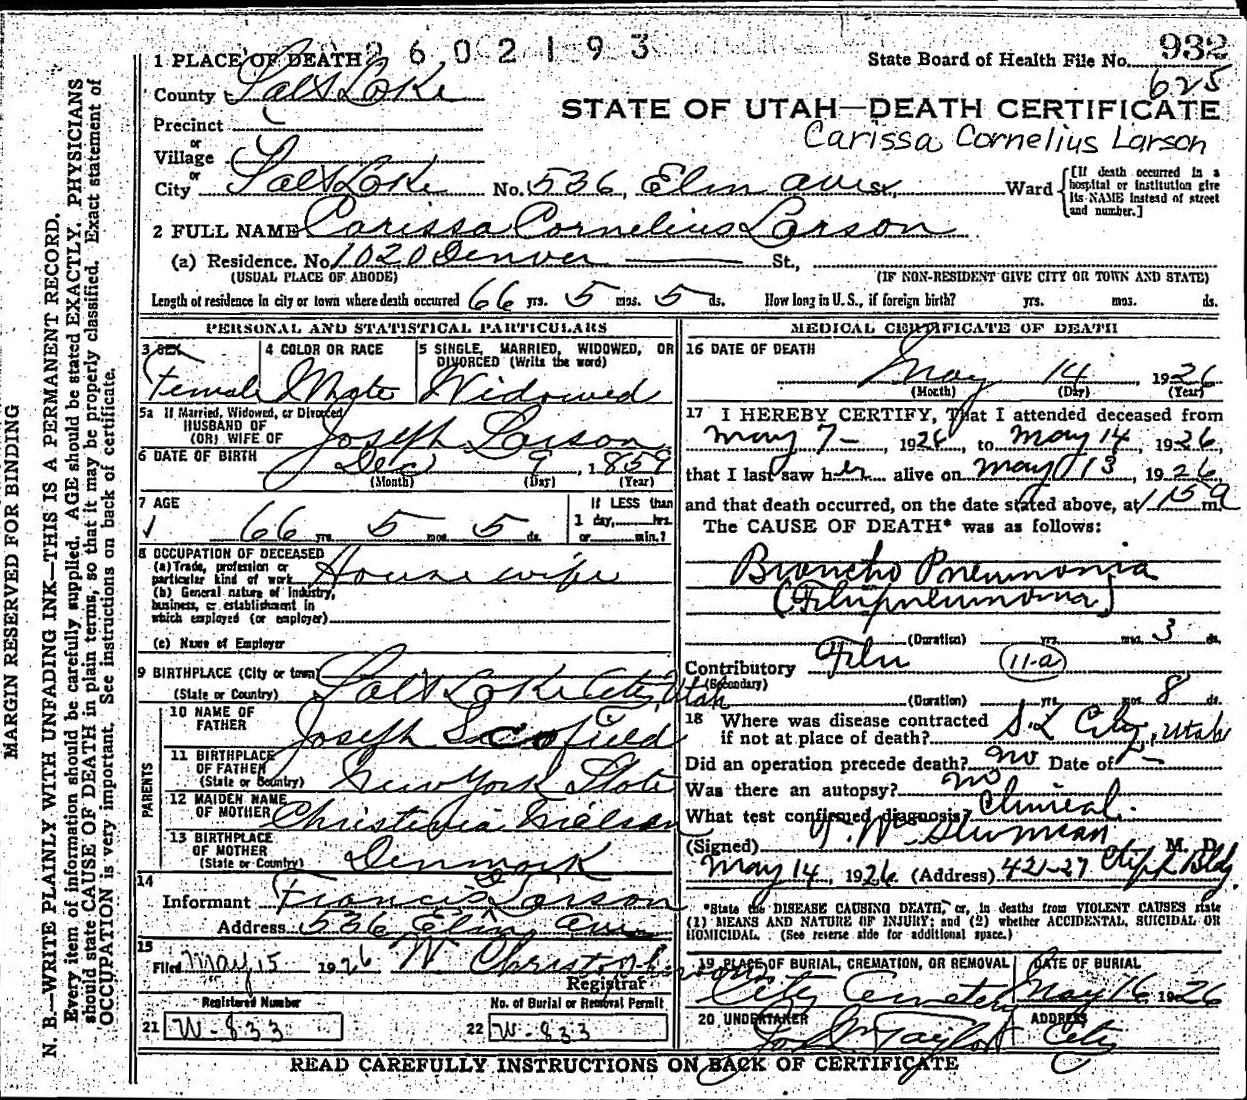 2602193
State Board of Health File No. 932
625
1 PLACE OF DEATH
County Salt Lake
STATE OF UTAH—DEATH CERTIFICATE
Carissa Cornelius Larson
Precinct
or
Village
or
City Salt Lake No. 536 Elm Ave St., Ward
[If death occurred in a hospital or institution give its NAME instead of street and number.]
2 FULL NAME Carissa Cornelius Larson
(a) Residence. No. 1020 Denver St.,
(USUAL PLACE OF ABODE) (IF NON-RESIDENT GIVE CITY OR TOWN AND STATE)
Length of residence in city or town where death occurred 66 yrs. 5 mos. 5 ds. How long in U.S., if foreign birth? yrs. mos. ds.
PERSONAL AND STATISTICAL PARTICULARS
3 SEX
Female
4 COLOR OR RACE
White
5 SINGLE, MARRIED, WIDOWED, OR DIVORCED (Write the word)
Widowed
5a If Married, Widowed, or Divorced
HUSBAND OF
(OR) WIFE OF Joseph Larson
6 DATE OF BIRTH Dec 9, 1859
(Month) (Day) (Year)
7 AGE
66 yrs. 5 mos. 5 ds.
If LESS than
1 day, hrs.
or min.?
8 OCCUPATION OF DECEASED
(a) Trade, profession or
particular kind of work Housewife
(b) General nature of industry,
business, or establishment in
which employed (or employer)
(c) Name of Employer
9 BIRTHPLACE (City or town) Salt Lake City, Utah
(State or Country)
PARENTS
10 NAME OF
FATHER Joseph Scofield
11 BIRTHPLACE
OF FATHER
(State or Country) New York State
12 MAIDEN NAME
OF MOTHER Christinia Nielson
13 BIRTHPLACE
OF MOTHER
(State or Country) Denmark
14
Informant Francis Larson
Address 536 Elm Ave
15
Filed May 15 1926 W Christopherson
Registrar
Registered Number
21 W-833
No. of Burial or Removal Permit
22 W-833
MEDICAL CERTIFICATE OF DEATH
16 DATE OF DEATH
May 14, 1926
(Month) (Day) (Year)
17 I HEREBY CERTIFY, That I attended deceased from
May 7-, 1926, to May 14, 1926,
that I last saw her alive on May 13, 1926
and that death occurred, on the date stated above, at 115 a m.
The CAUSE OF DEATH* was as follows:
Broncho Pneumonia
(Flu pneumonia)
(Duration) yrs. mos. 3 ds.
Contributory Flu 11-a
(Secondary)
(Duration) yrs. mos. 8 ds.
18 Where was disease contracted
if not at place of death? S. L City, Utah
Did an operation precede death? no Date of —
Was there an autopsy? no
What test confirmed diagnosis? Clinical.
(Signed) M. D.
May 14, 1926. (Address) 421-27 Bldg.
*State the DISEASE CAUSING DEATH, or, in deaths from VIOLENT CAUSES state
(1) MEANS AND NATURE OF INJURY; and (2) whether ACCIDENTAL, SUICIDAL OR
HOMICIDAL. (See reverse side for additional space.)
19 PLACE OF BURIAL, CREMATION, OR REMOVAL
City Cemetery
DATE OF BURIAL
May 16 1926
20 UNDERTAKER
Taylor
ADDRESS
City
READ CAREFULLY INSTRUCTIONS ON BACK OF CERTIFICATE
MARGIN RESERVED FOR BINDING
N. B.—WRITE PLAINLY WITH UNFADING INK—THIS IS A PERMANENT RECORD.
Every item of information should be carefully supplied. AGE should be stated EXACTLY. PHYSICIANS
should state CAUSE OF DEATH in plain terms, so that it may be properly classified. Exact statement of
OCCUPATION is very important. See instructions on back of certificate.